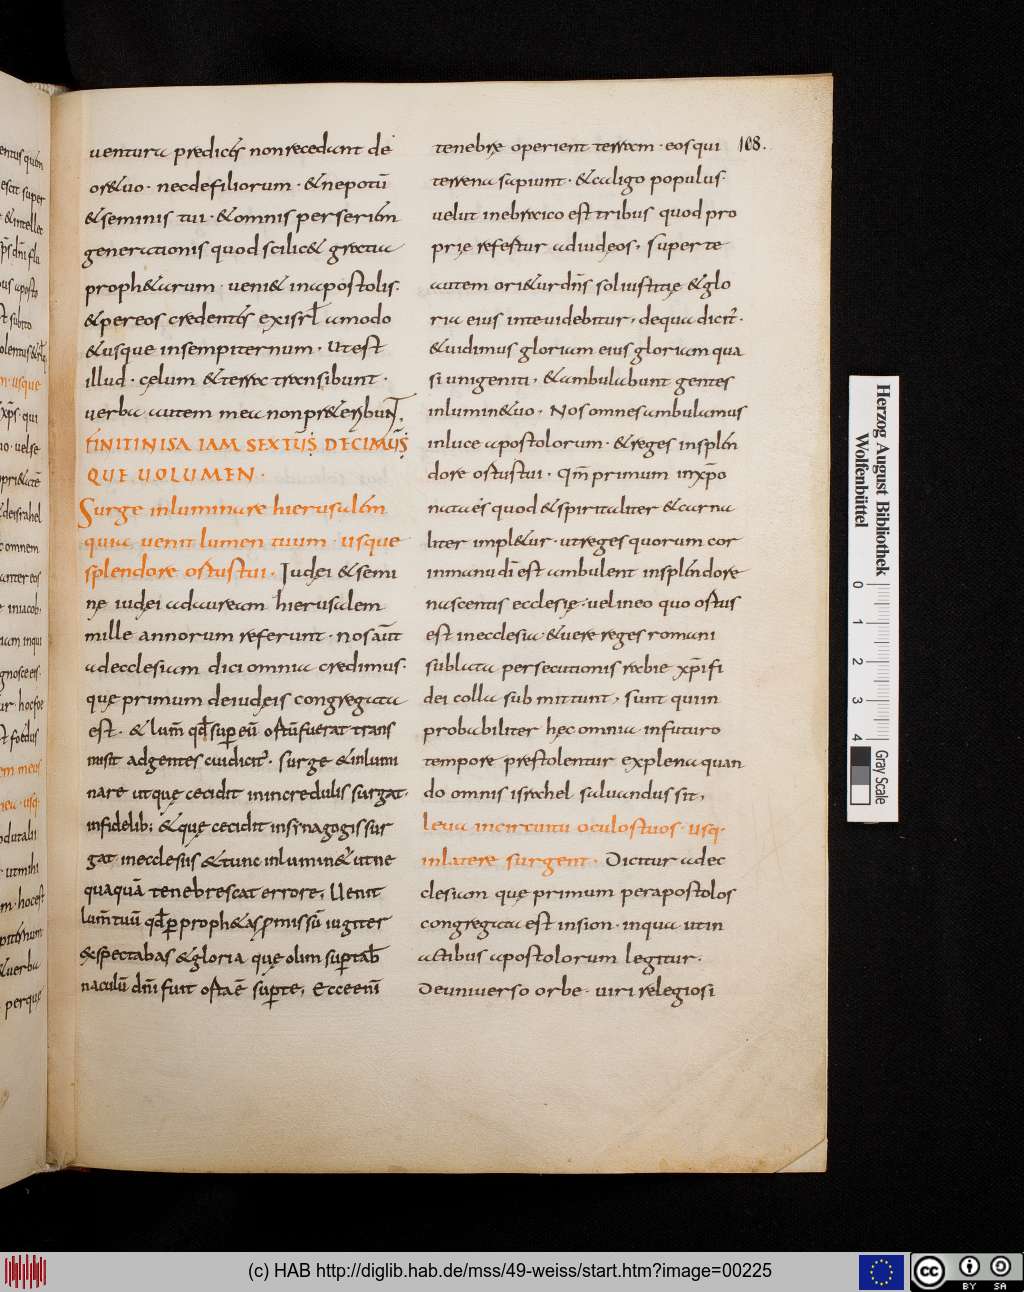 uentura predictis non recedunt de
ore tuo · nec de filiorum · & nepotū
& seminis tui · & omnis per seriem
generationis quod scilic& gratia
proph&arum · ueni& in apostolis·
& per eos credentes ex isrl̄ amodo
& usque in sempiternum · Ut est
illud · cęlum & terra transibunt ·
uerba autem mea non pr&eribunt.
FINIT IN ISAIAM SEXTUS DECIMUS
QUE UOLUMEN ·
Surge inluminare hierusalem
quia uenit lumen tuum · usque
splendore ortus tui · Iudęi & semi
nę iudęi ad auream hierusalem
mille annorum referunt · nos aūt
ad ecclesiam dici omnia credimus·
quę primum de iudęis congregata
est · & lum̄ qd̄ super eū ortū fuerat trans
misit ad gentes cui dicit̄· surge & inlumi
nare ut quę cecidit in incredulis surgat·
in fidelib; & quę cecidit in synagogis sur
gat in ecclesiis & tunc inlumin&ur ut ne
quaquā tenebrescat errore; Uenit
lum̄ tuū qd̄ per proph&as promissū iugiter
exspectabas & gloria quę olim sup tab̄
naculū dn̄i fuit orta ē super te; Ecce eni
tenebrę operient terram · eos qui 108.
terrena sapiunt · & caligo populus·
uelut in ebraico est tribus quod pro
prię refertur ad iudęos; super te
autem ori&ur dn̄s sol iustitię & glo
ria eius in te uidebitur; de qua dicit̄·
& uidimus gloriam eius gloriam qua
si unigeniti; & ambulabunt gentes
in lumine tuo · Nos omnes ambulamus
in luce apostolorum · & reges in splen
dore ortus tui · Qm̄ primum in xp̄o
nata es quod & spiritaliter & carna
liter impl&ur · ut reges quorum cor
in manu dī est ambulent in splendore
nascentis ecclesię · uel in eo quo ortus
est in ecclesia · & uere reges romani
sublata persecutionis rabie xp̄i fi
dei colla submittunt; sunt qui in
probabiliter hęc omnia in futuro
tempore prestolentur explenda quan
do omnis israhel saluandus sit;
Leua in circuitu oculos tuos · usq·
in latere surgent · Dicitur ad ec
clesiam quę primum per apostolos
congregata est in sion · in qua ut in
actibus apostolorum legitur·
De uniuerso orbe · uiri relegiosi
Herzog August Bibliothek
Wolfenbüttel
0 1 2 3 4
Gray Scale
(c) HAB http://diglib.hab.de/mss/49-weiss/start.htm?image=00225
cc BY SA